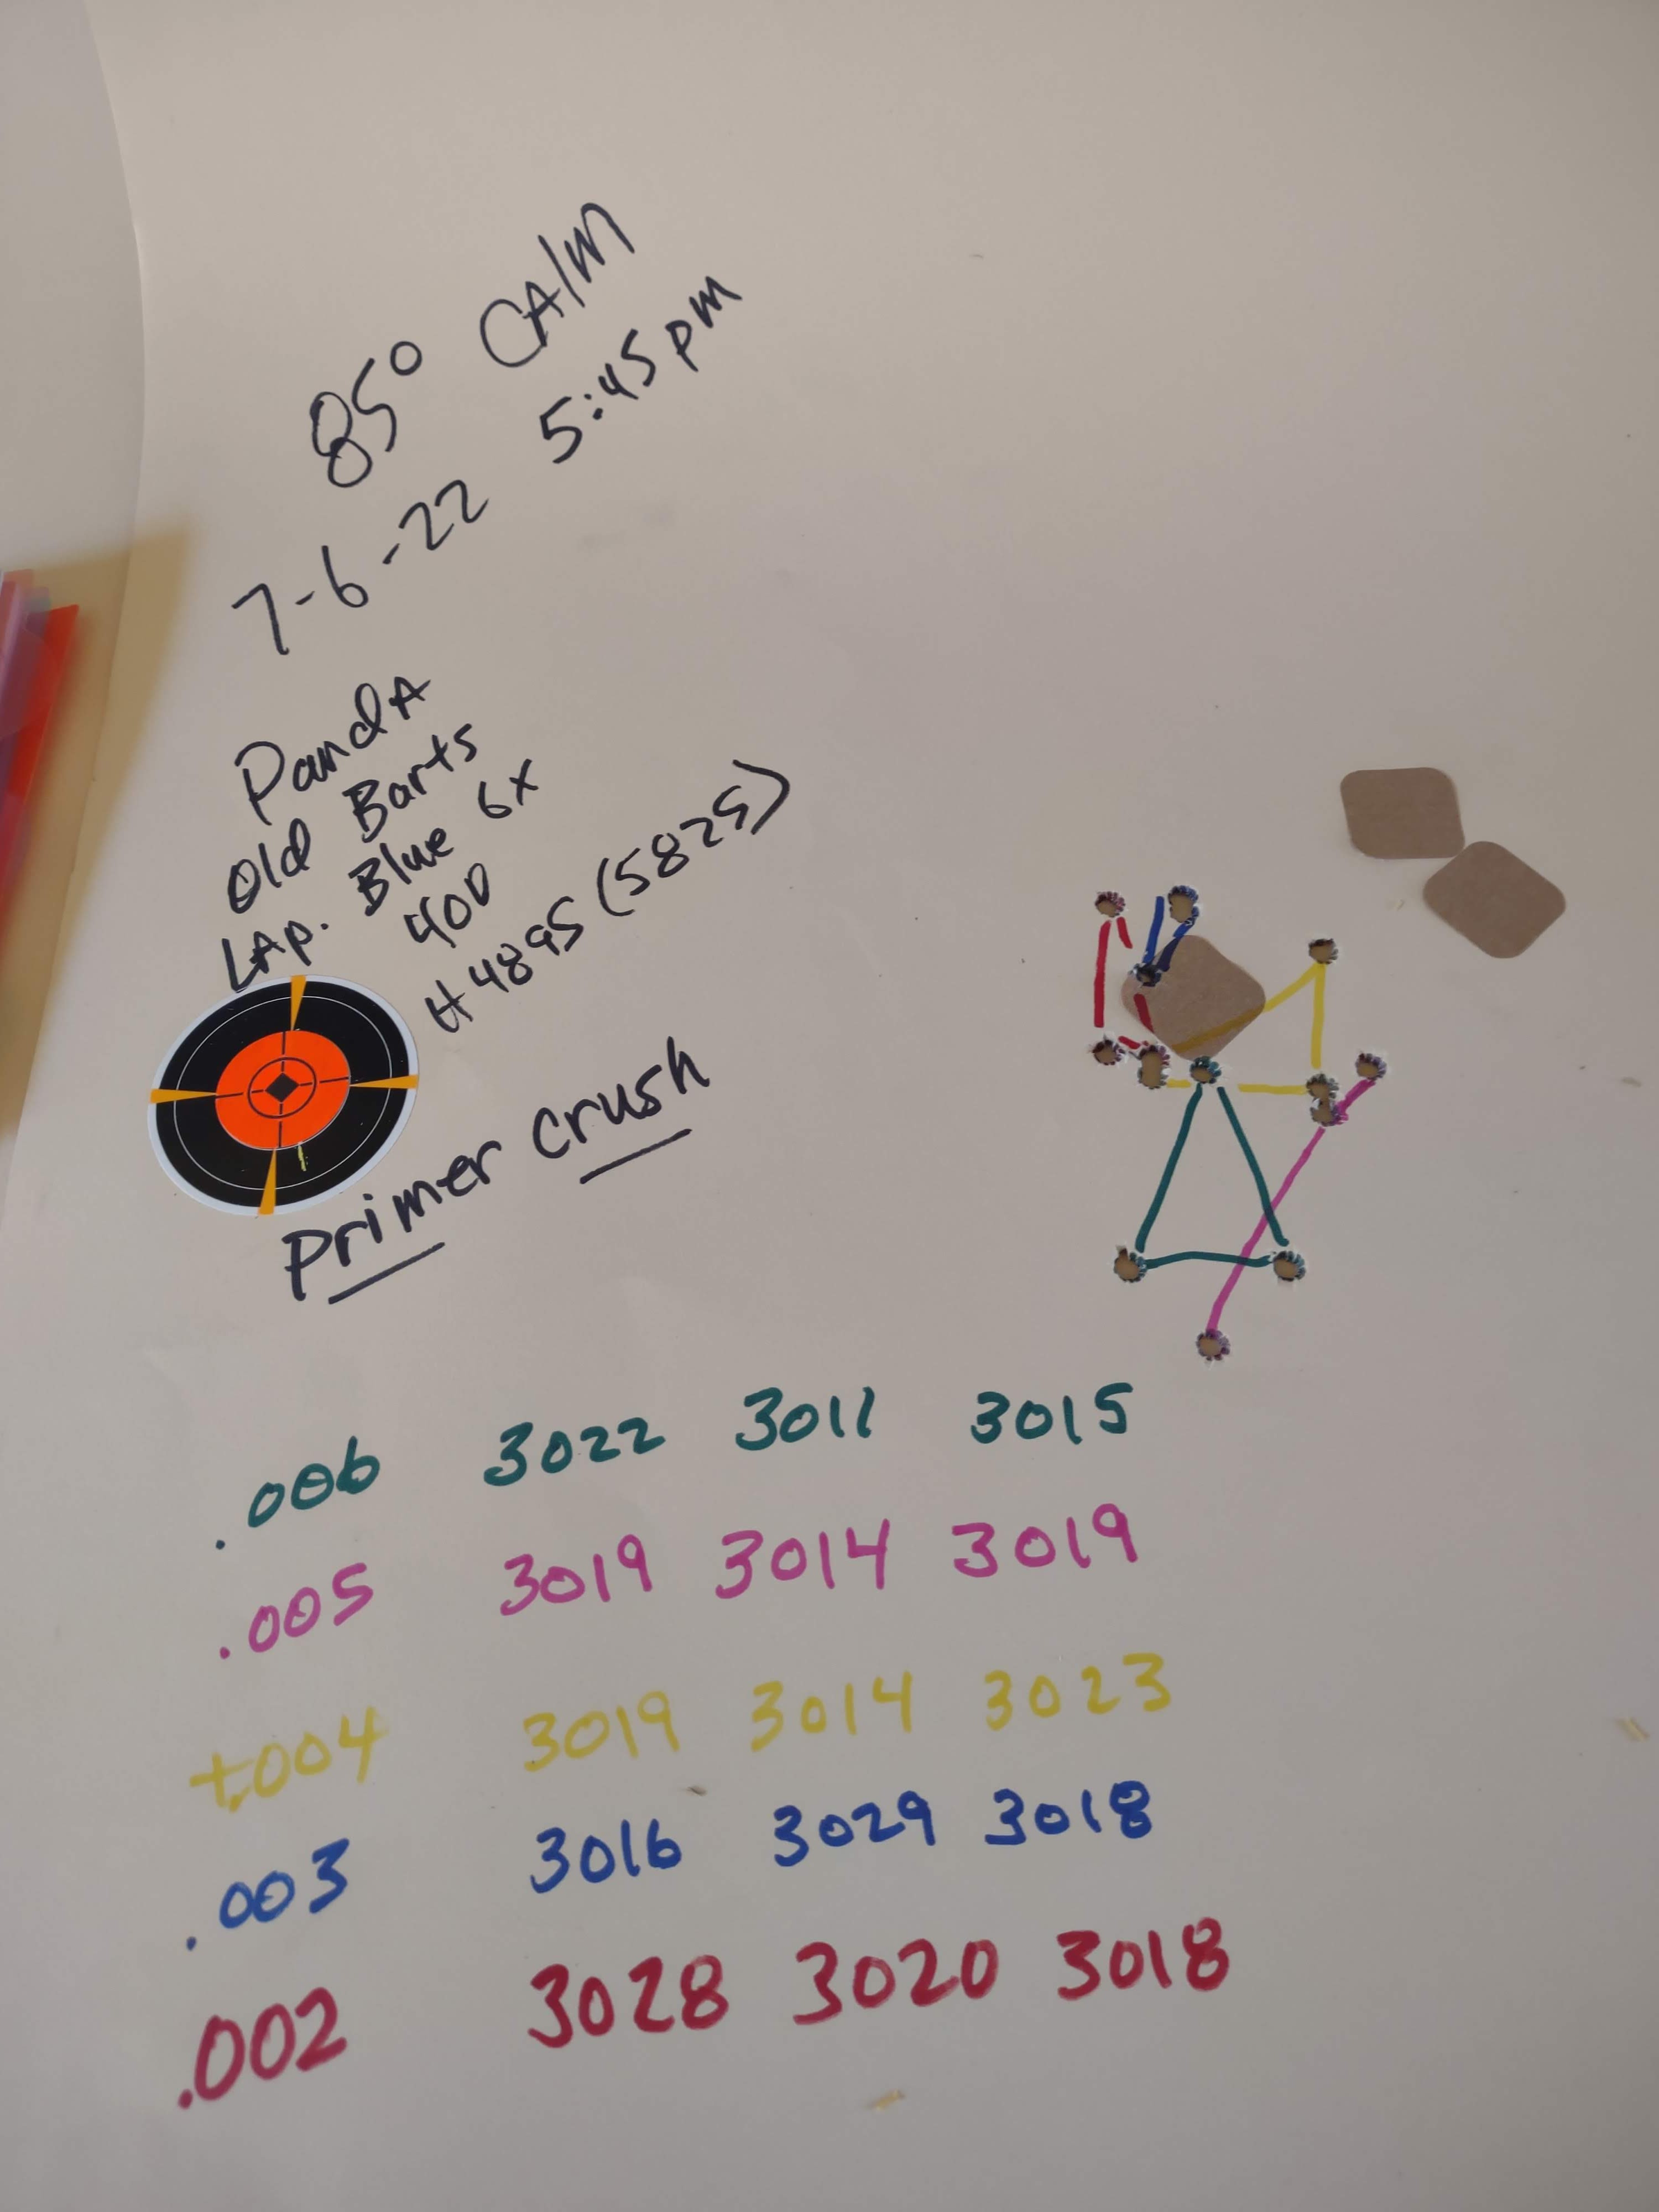 85° CAlM
7-6-22 5:45 pm
PandA
Old Barts
LAp. Blue 6x
400
H4895 (5825)
Primer Crush
.006 3022 3011 3015
.005 3019 3014 3019
+.004 3019 3014 3023
.003 3016 3029 3018
.002 3028 3020 3018